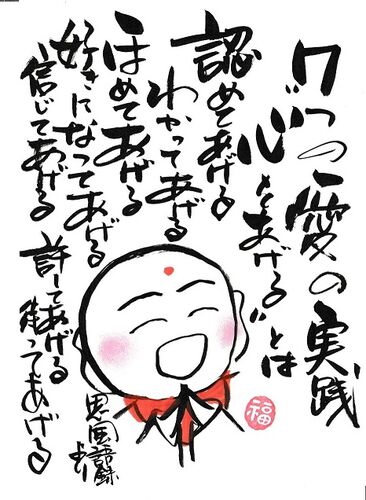 7つの愛の実践
"心をあげる"とは
認めてあげる
わかってあげる
ほめてあげる
好きになってあげる
信じてあげる
許してあげる
待ってあげる
思風語録
より
福